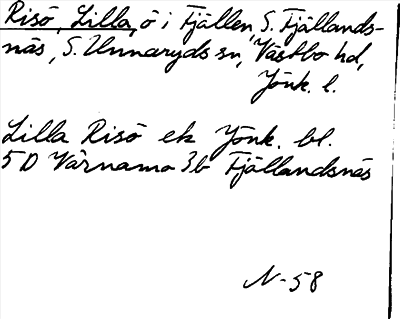 Risö, Lilla, ö i Fjällen, S. Fjällands-
näs, S. Unnaryds sn, Västbo hd,
Jönk. l.
Lilla Risö ek Jönk. bl.
5D Värnamo 3b Fjällandsnäs
N-58